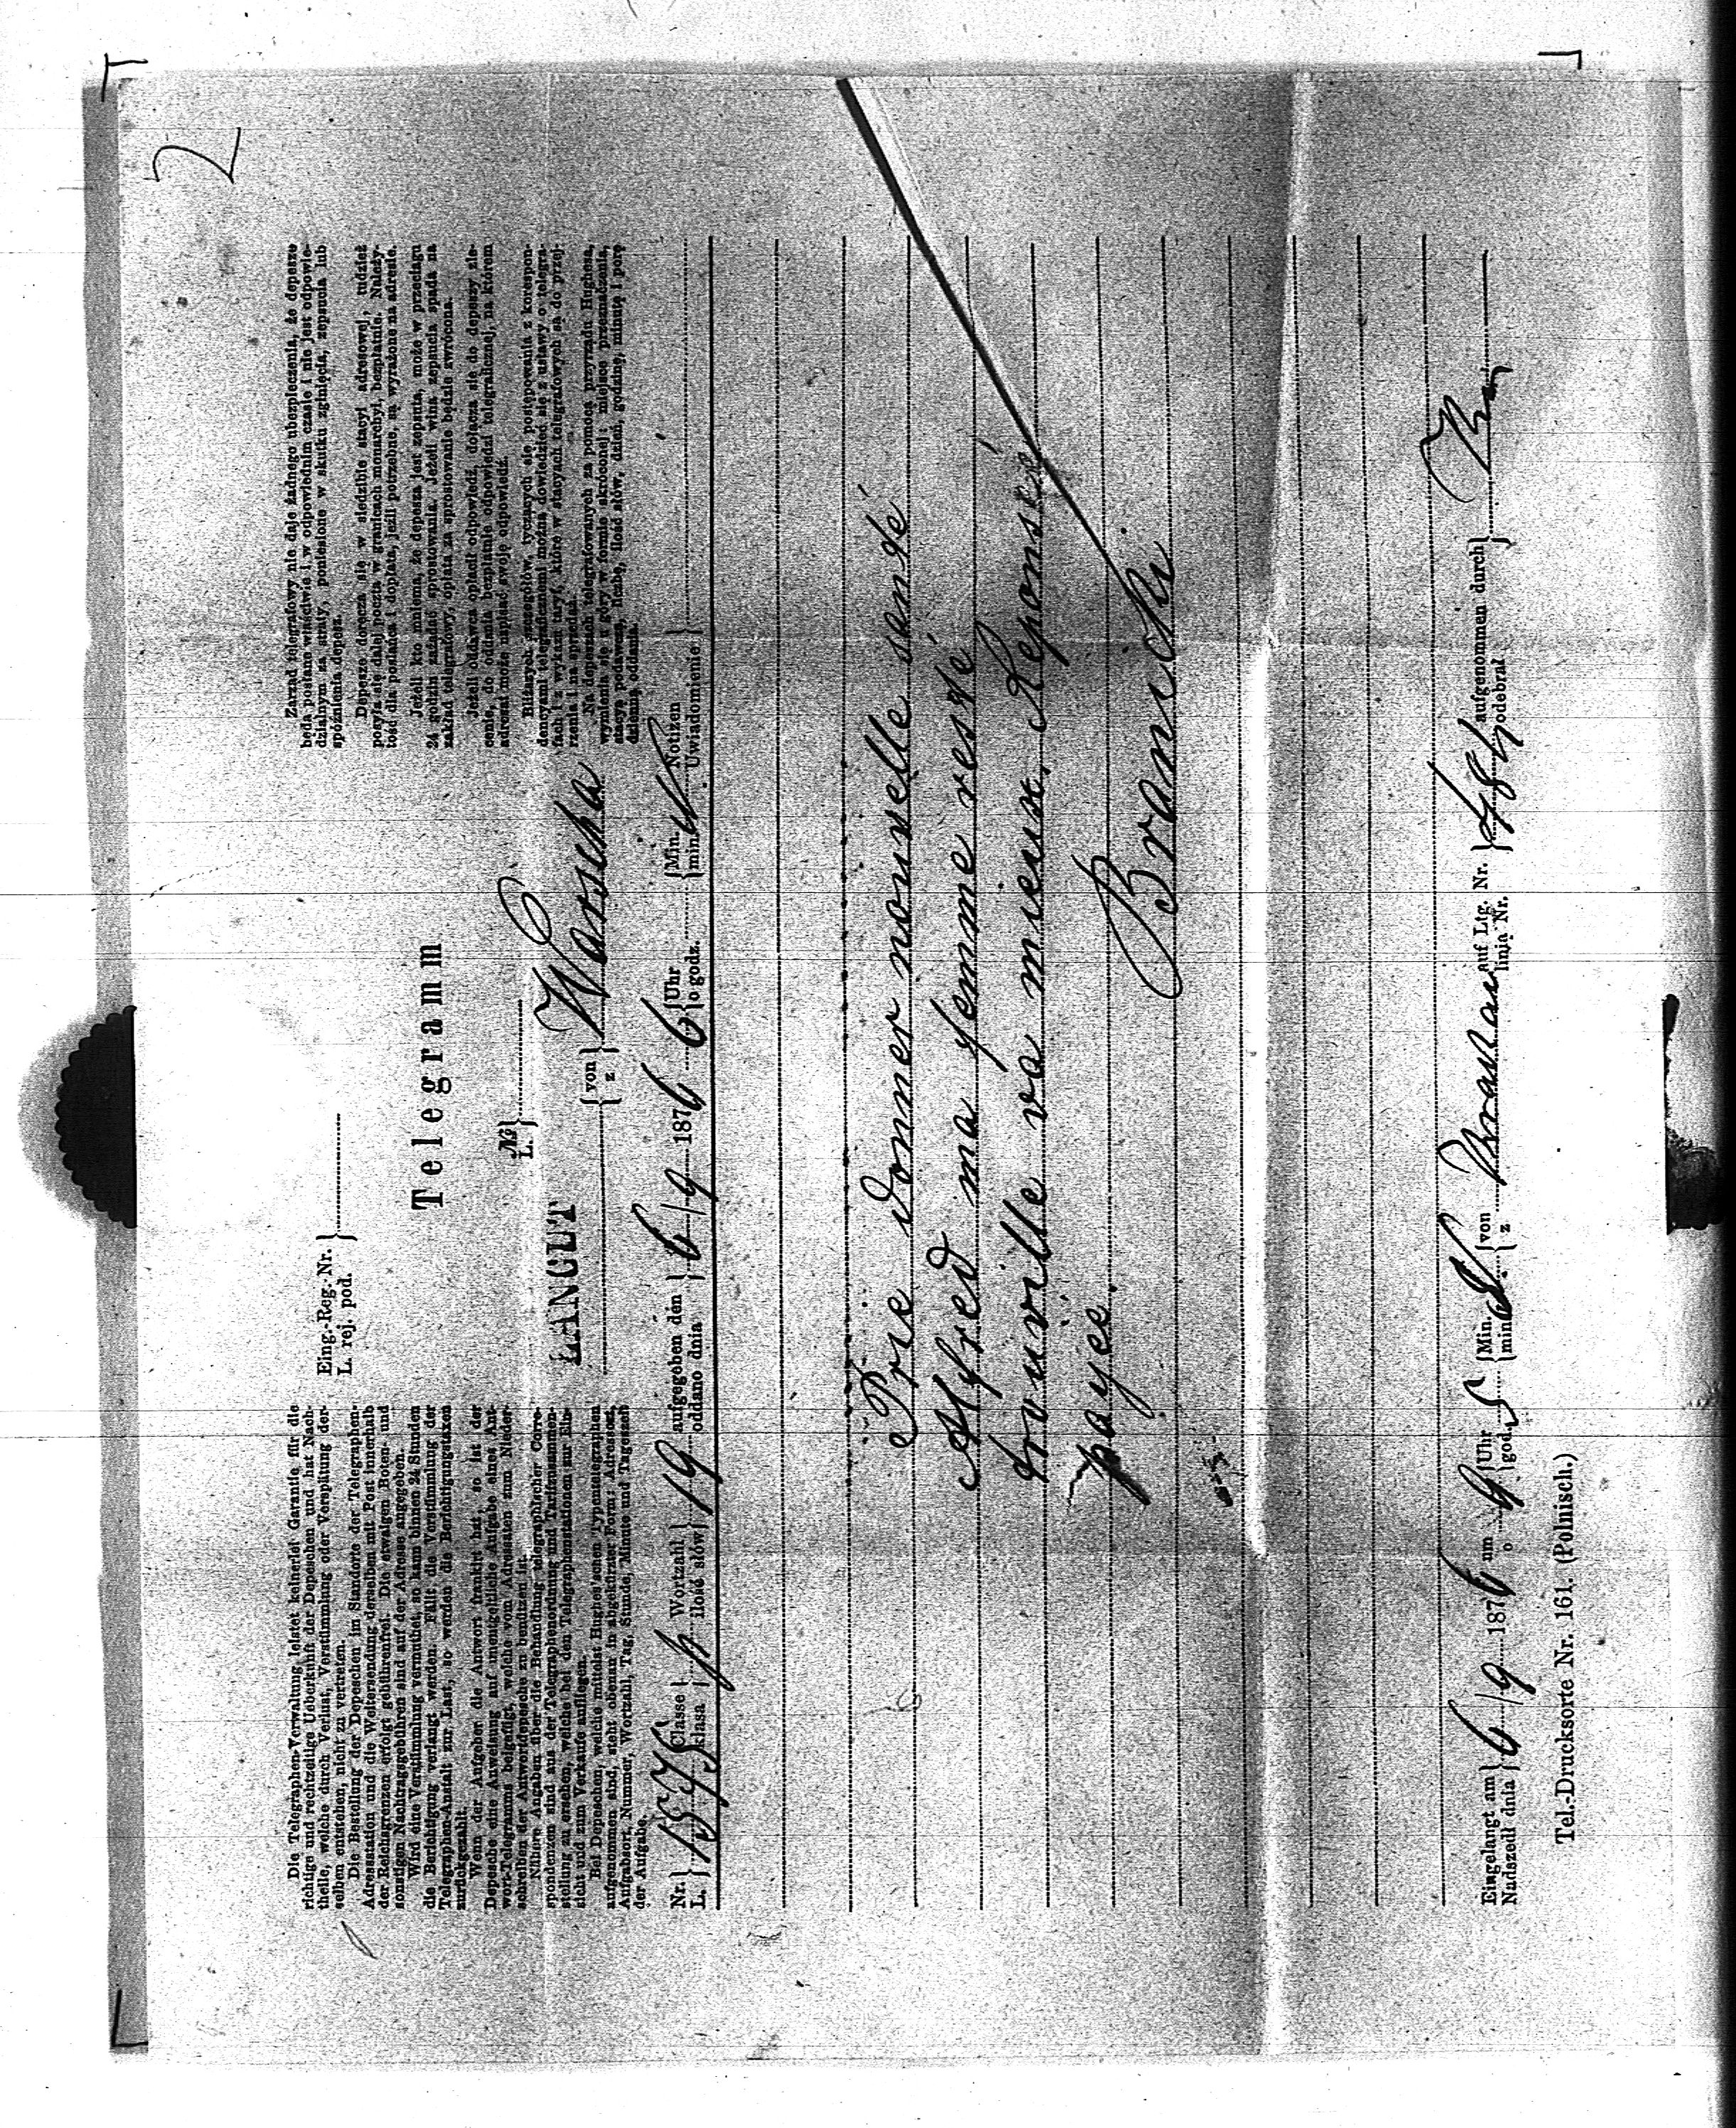 2
Die Telegraphen-Verwaltung leistet keinerlei Garantie für die
richtige und rechtzeitige Ueberkunft der Depeschen und hat Nach-
theile, welche durch Verlust, Verstümmlung oder Verspätung der-
selben entstehen, nicht zu vertreten.
Die Bestellung der Depeschen im Standorte der Telegraphen-
Adressstation und die Weitersendung derselben mit Post innerhalb
der Reichsgrenzen erfolgt gebührenfrei. Die etwaigen Boten- und
sonstigen Nachtragsgebühren sind auf der Adresse angegeben.
Wird eine Verstümmlung vermuthet, so kann binnen 24 Stunden
die Berichtigung verlangt werden. Fällt die Verstümmlung der
Telegraphen-Anstalt zur Last, so werden die Berichtigungstaxen
zurückgezahlt.
Wenn der Aufgeber die Antwort frankirt hat, so ist der
Depesche eine Anweisung auf unentgeltliche Aufgabe eines Ant-
wort-Telegramms beigefügt, welche vom Adressaten zum Nieder-
schreiben der Antwortdepesche zu benützen ist.
Nähere Angaben über die Behandlung telegraphischer Corre-
spondenzen sind aus der Telegraphenordnung und Tarifzusammen-
stellung zu ersehen, welche bei den Telegraphenstationen zur Ein-
sicht und zum Verkaufe aufliegen.
Bei Depeschen, welche mittelst Hughes'schen Typentelegraphen
aufgenommen sind, steht obenan in abgekürzter Form: Adressort,
Aufgabsort, Nummer, Wortzahl, Tag, Stunde, Minute und Tageszeit
der Aufgabe.
Eing.-Reg.-Nr.
L. rej. pod.
Telegramm
№
L.
ŁAŃCUT
von
z
Warscha
Zarząd telegrafowy nie daje żadnego ubezpieczenia, że depesze
będą posłane właściwie i w odpowiednim czasie i nie jest odpowie-
dzialnym za straty, poniesione w skutku zginięcia, zepsucia lub
spóźnienia depesz.
Depesze doręcza się w siedzibie stacyi adresowej, tudzież
posyła się dalej pocztą w granicach monarchyi, bezpłatnie. Należy-
tość dla posłańca i dopłata, jeźli potrzebne, są wyrażone na adresie.
Jeżeli kto mniema, że depesza jest zepsuta, może w przeciągu
24 godzin zażądać sprostowania. Jeżeli wina zepsucia spada na
zakład telegrafowy, opłata za sprostowanie będzie zwrócona.
Jeżeli oddawca opłacił odpowiedź, dołącza się do depeszy zle-
cenie, do oddania bezpłatnie odpowiedzi telegraficznej, na którem
adresat może napisać swoję odpowiedź.
Bliższych szczegółów, tyczących się postępowania z korespon-
dencyami telegraficznemi można dowiedzieć się z ustawy o telegra-
fach i z wykazu taryf, które w stacyach telegrafowych są do przej-
rzenia i na sprzedaż.
Na depeszach telegrafowanych za pomocą przyrządu Hughesa,
wymienia się u góry w formie skróconej: miejsce przeznaczenia,
stacyę podawczą, liczbę, ilość słów, dzień, godzinę, minutę i porę
dzienną oddania.
Nr. L. 1575 Classe klasa p Wortzahl ilość słów 19 aufgegeben den oddano dnia 6/9 1876 6 Uhr o godz. Min. min. Notizen Uwiadomienie
Prie donner nouvelle santé
Alfred ma femme resste
trouville va mieux, Reponse
payee.
Branicki
Eingelangt am Nadszedł dnia 6/9 1876 um o 9 Uhr god. 5 Min. min von z Krakau auf Ltg. Nr. linia Nr. 48 aufgenommen durch odebrał
Tel.-Drucksorte Nr. 161. (Polnisch.)